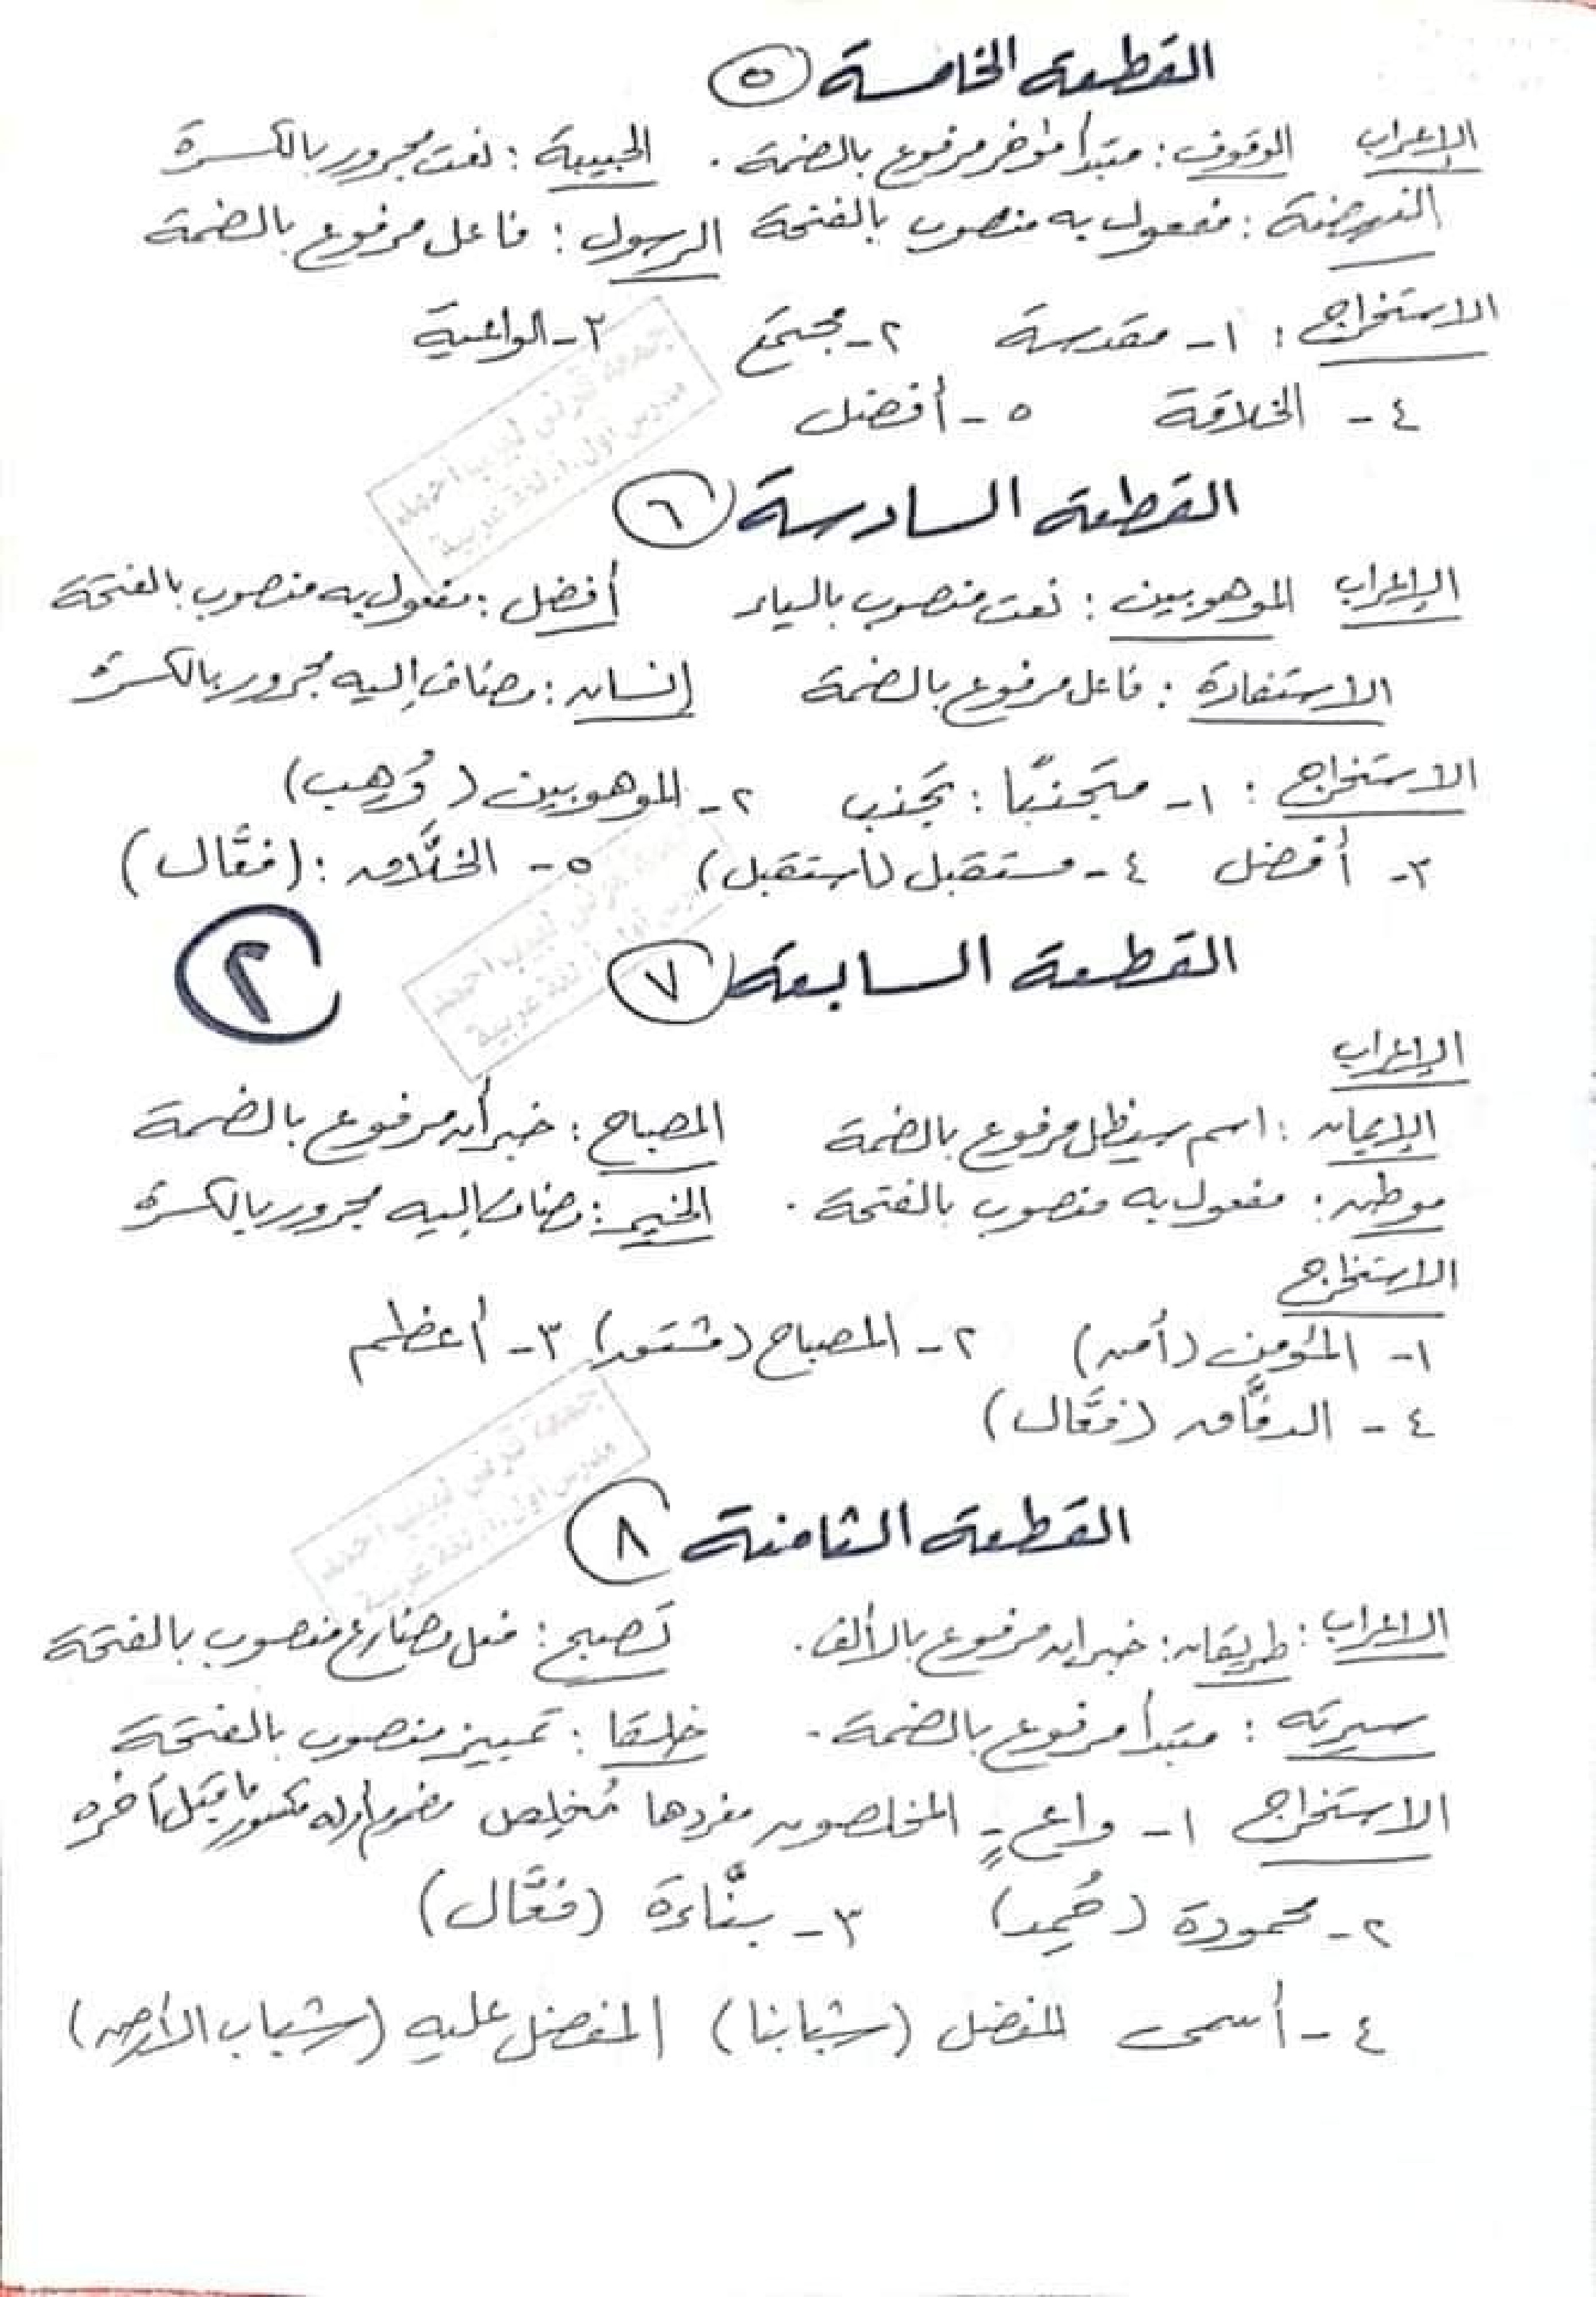 القطعة الخامسة ٥
الإعراب الوقوف : مبتدأ مؤخر مرفوع بالضمة . الحبيبة : نعت مجرور بالكسرة
النهضة : مفعول به منصوب بالفتحة الرسول : فاعل مرفوع بالضمة
الاستخراج : ١- مقدسة ٢- مجتمع ٣- الواعية
٤- الخلاقة ٥- أفضل
القطعة السادسة ٦
الإعراب الموهوبين : نعت منصوب بالياء أفضل : مفعول به منصوب بالفتحة
الاستفادة : فاعل مرفوع بالضمة إنسان : مضاف إليه مجرور بالكسرة
الاستخراج : ١- متجنبًا : تجنب ٢- الموهوبين (وُهِب)
٣- أفضل ٤- مستقبل (استقبل) ٥- الخلَّاق : (فعَّال)
القطعة السابعة ٧
٢
الإعراب
الإيمان : اسم سيظل مرفوع بالضمة المصباح : خبر أن مرفوع بالضمة
موطن : مفعول به منصوب بالفتحة . الخير : مضاف إليه مجرور بالكسرة
الاستخراج
١- المؤمن (أمن) ٢- المصباح (مشتق) ٣- أعظم
٤- الدفَّاق (فعَّال)
القطعة الثامنة ٨
الإعراب : طريقان : خبر إن مرفوع بالألف . تصبح : فعل مضارع منصوب بالفتحة
سيرته : مبتدأ مرفوع بالضمة . خلقا : تمييز منصوب بالفتحة
الاستخراج ١- واعٍ - المخلصون مفردها مُخلِص مضموم أوله مكسور ما قبل آخره
٢- محمودة (حُمِد) ٣- بنَّاءة (فعَّال)
٤- أسمى المفضل (شبابنا) المفضل عليه (شباب الأرض)